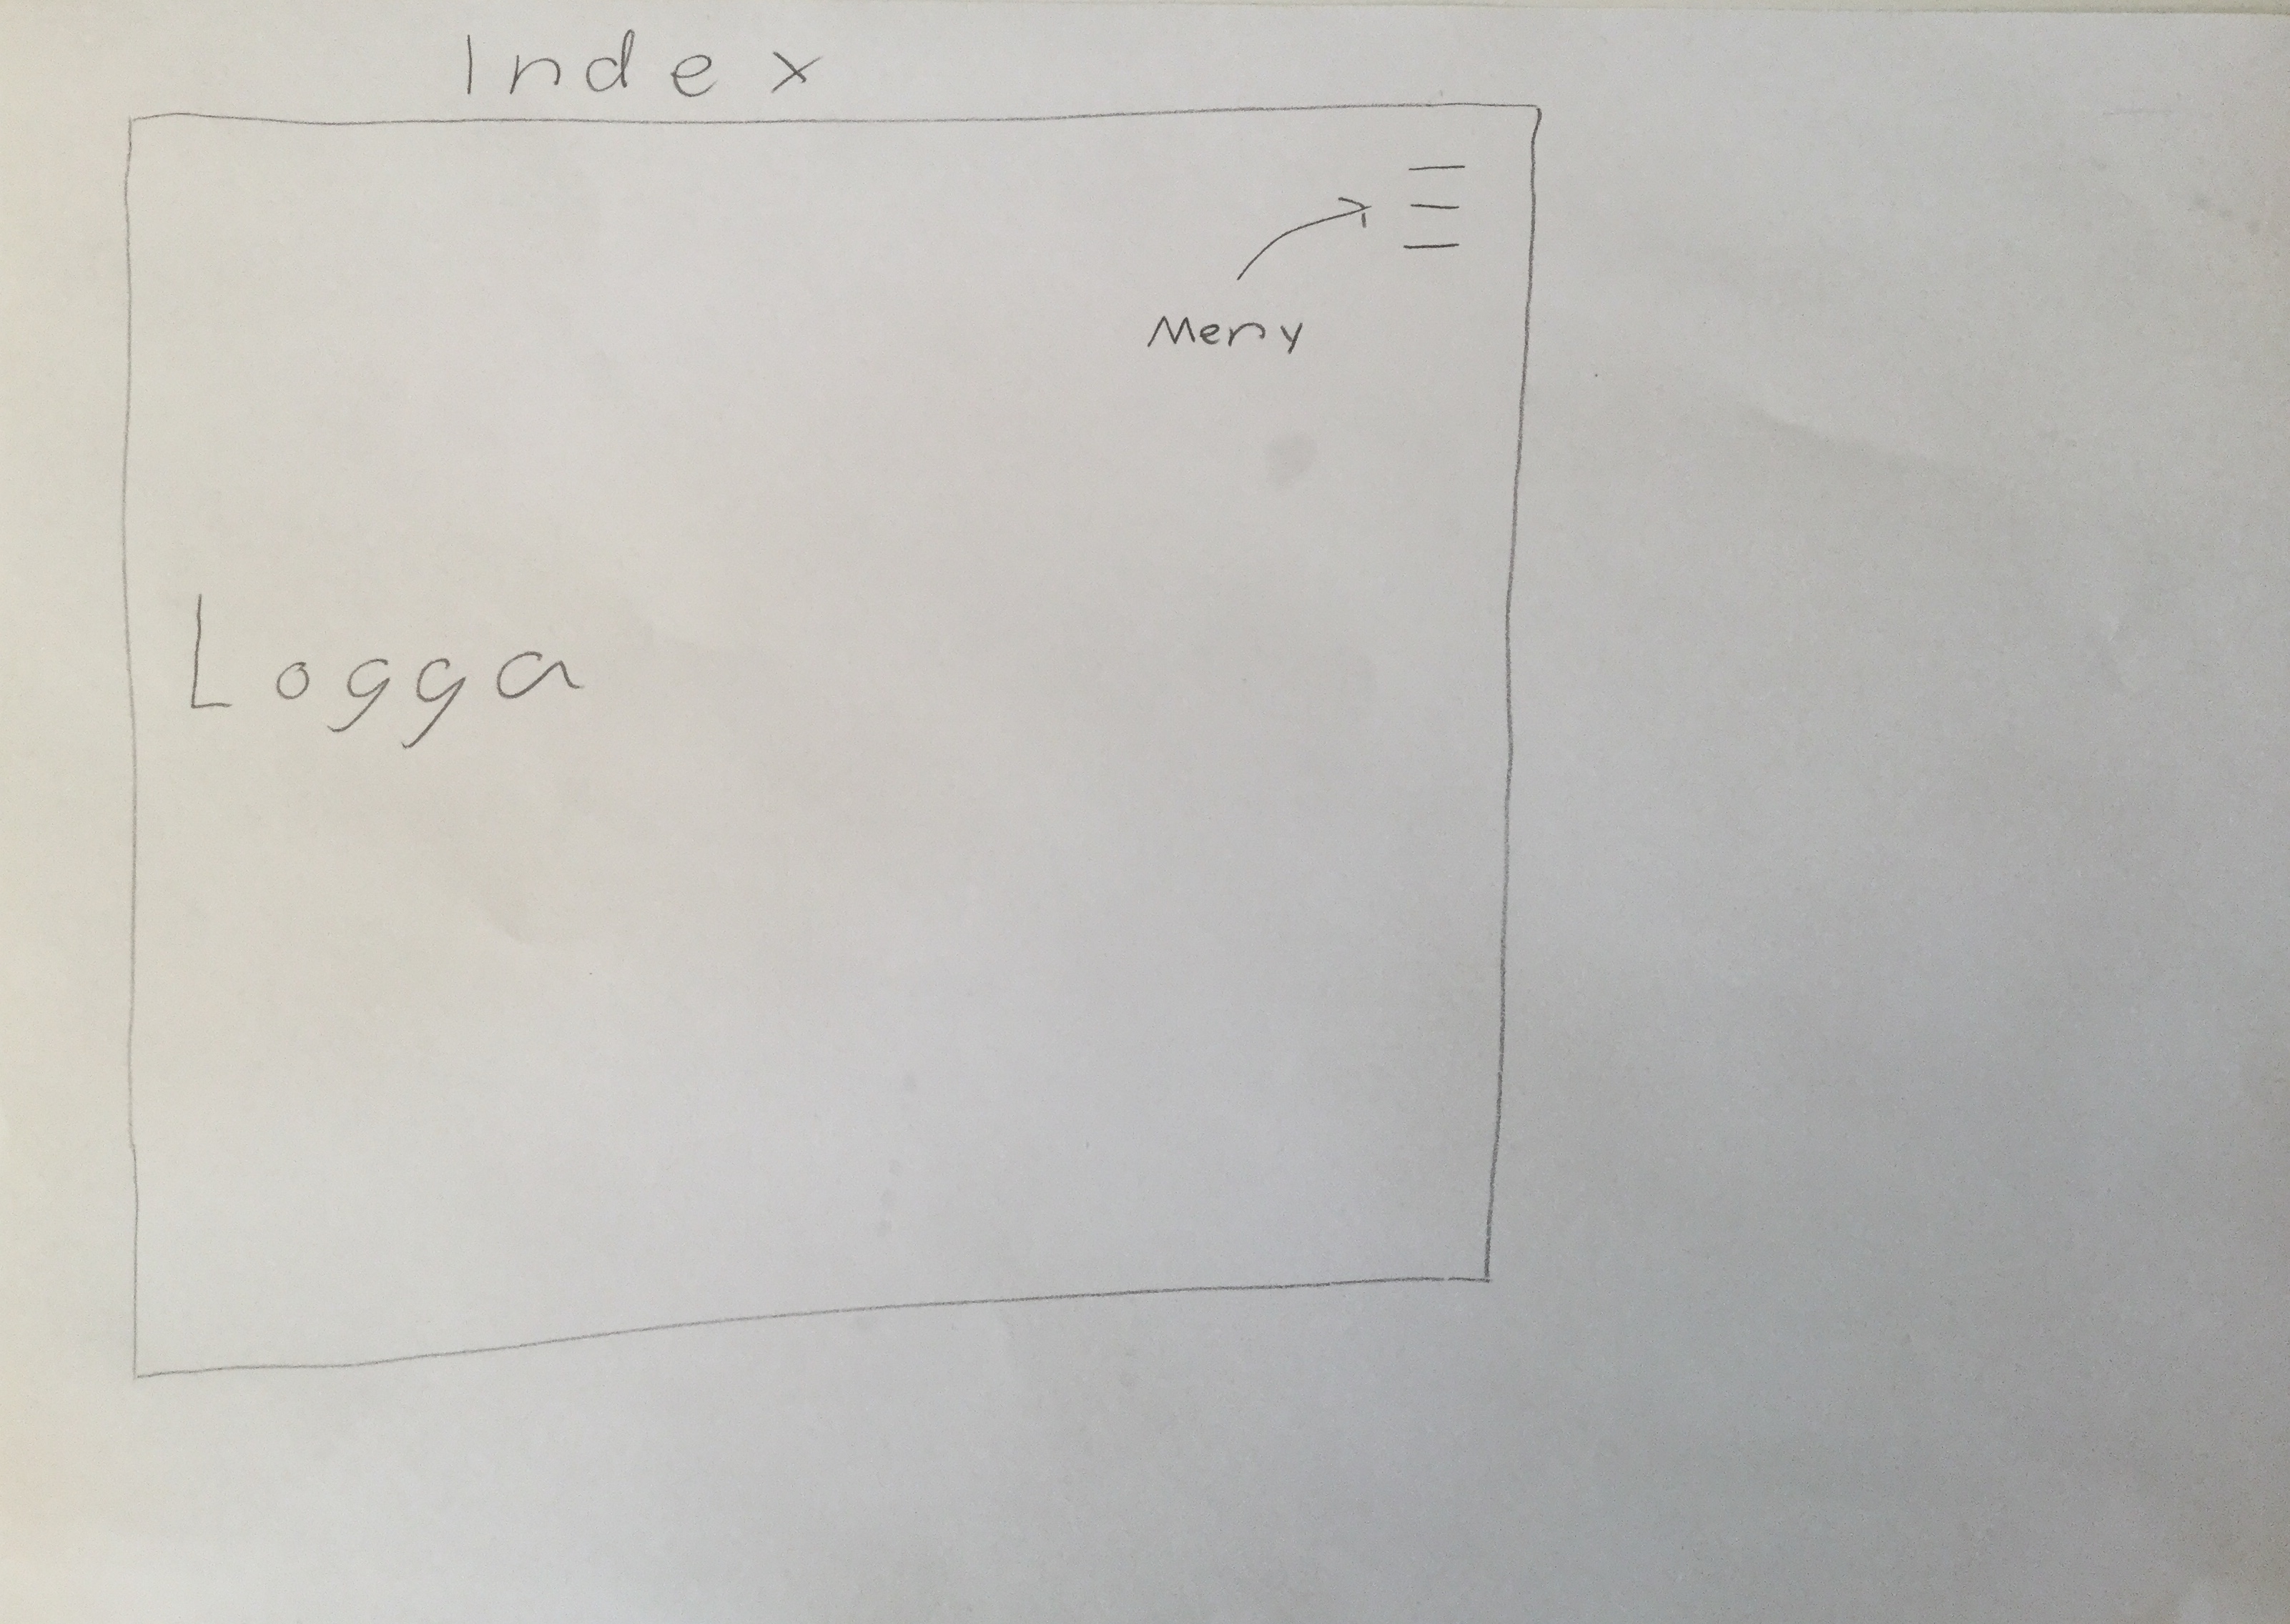 Index
Meny
Logga